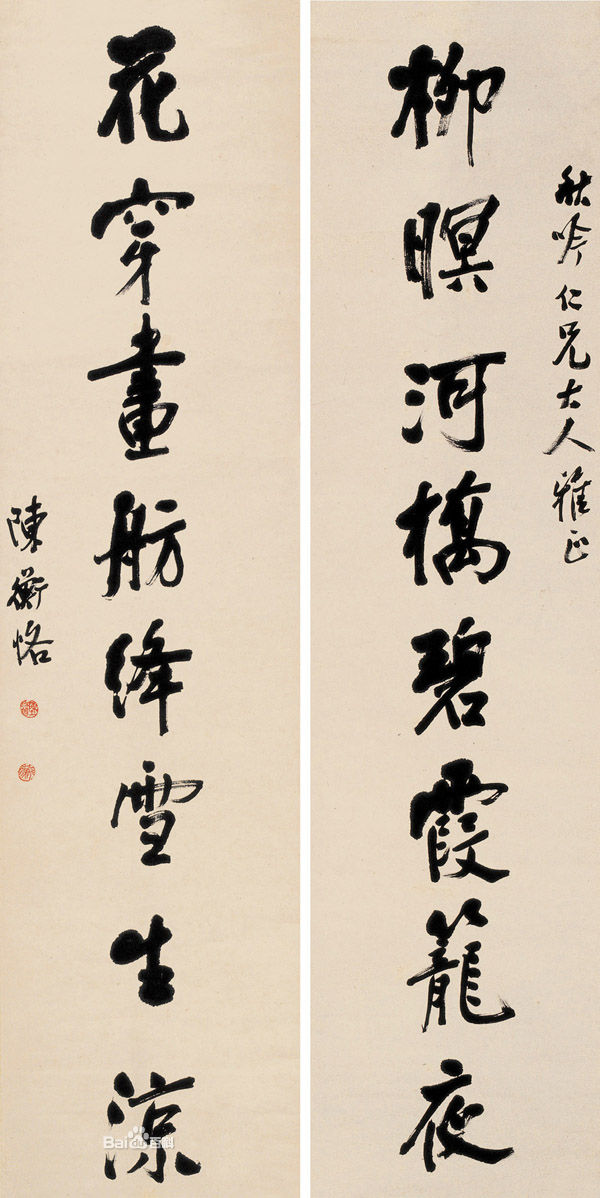 秋吟仁兄大人雅正
柳暝河橋碧霞籠夜
花穿畫舫絳雪生涼
陳衡恪
Bai百科